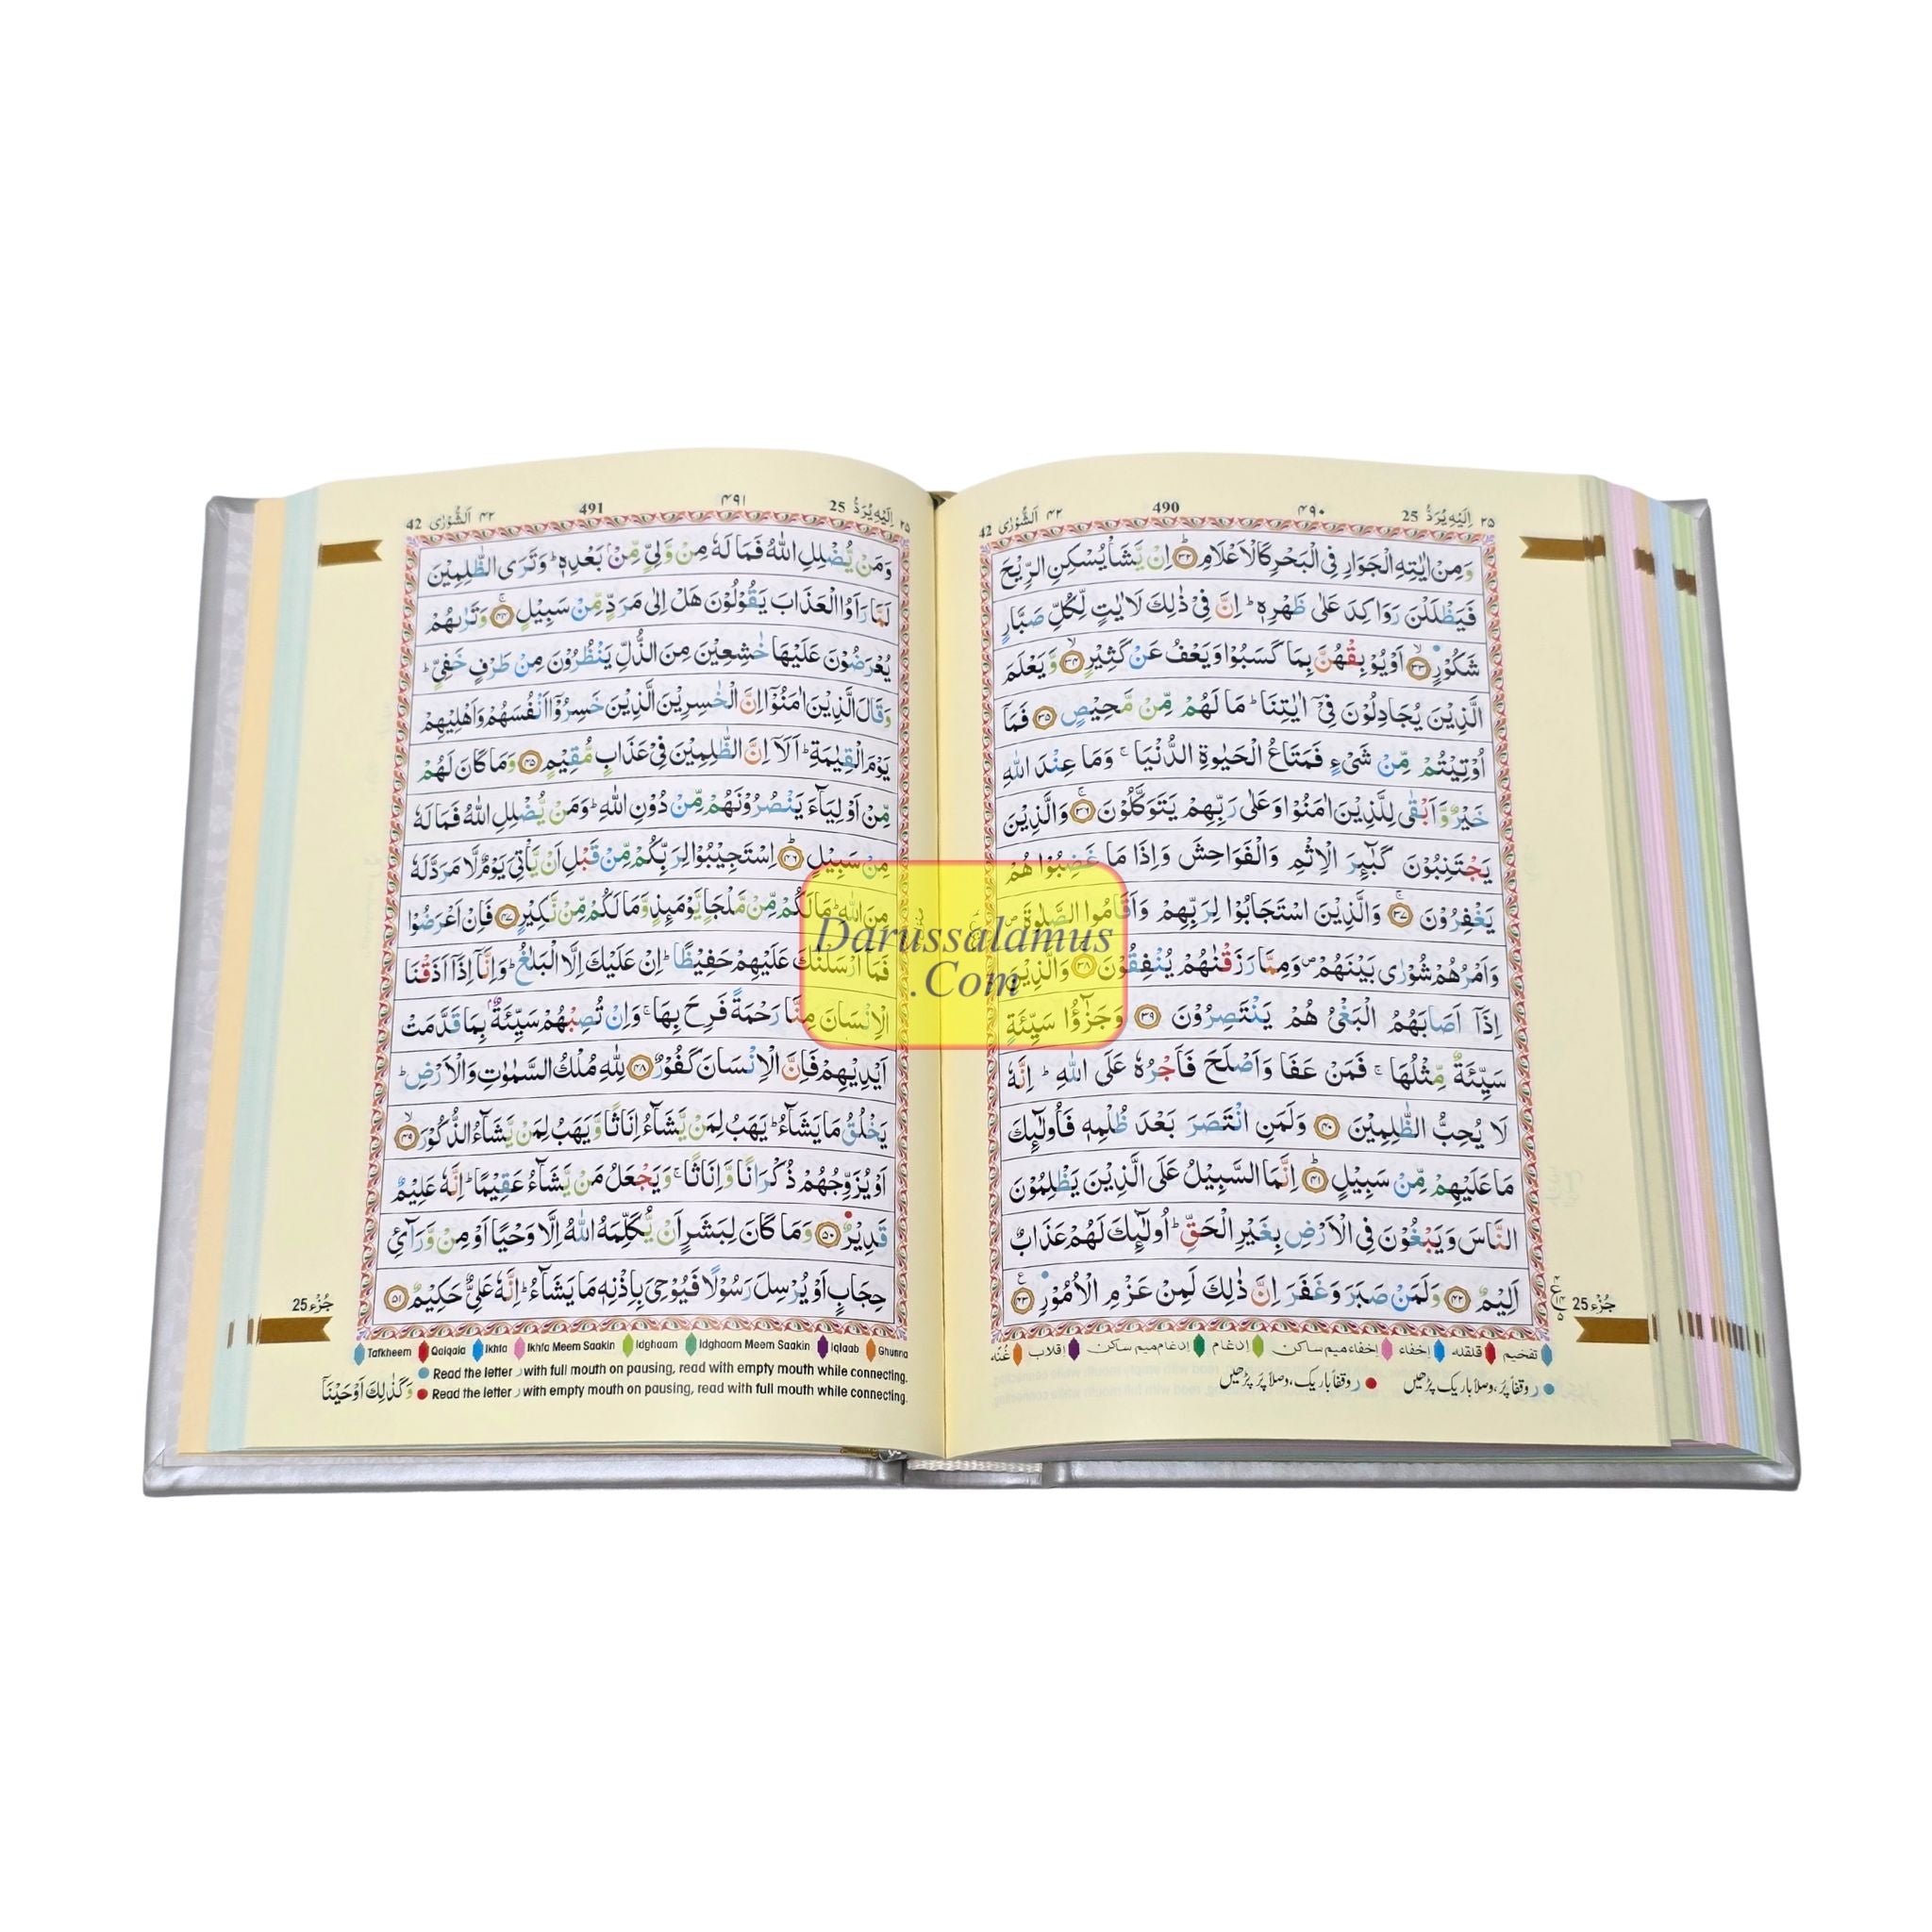 ۲۵ اِلَيْهِ يُرَدُّ 25 ۴۹۰ 490 ۴۲ اَلشُّوْرٰى 42
وَمِنْ اٰيٰتِهِ الْجَوَارِ فِى الْبَحْرِ كَالْاَعْلَامِ ﴿۳۲﴾ اِنْ يَّشَاْ يُسْكِنِ الرِّيْحَ
فَيَظْلَلْنَ رَوَاكِدَ عَلٰى ظَهْرِهٖ ؕ اِنَّ فِىْ ذٰلِكَ لَاٰيٰتٍ لِّكُلِّ صَبَّارٍ
شَكُوْرٍ ﴿۳۳﴾ اَوْ يُوْبِقْهُنَّ بِمَا كَسَبُوْا وَيَعْفُ عَنْ كَثِيْرٍ ﴿۳۴﴾ وَّيَعْلَمَ
الَّذِيْنَ يُجَادِلُوْنَ فِىْۤ اٰيٰتِنَا ؕ مَا لَهُمْ مِّنْ مَّحِيْصٍ ﴿۳۵﴾ فَمَاۤ
اُوْتِيْتُمْ مِّنْ شَىْءٍ فَمَتَاعُ الْحَيٰوةِ الدُّنْيَا ۚ وَمَا عِنْدَ اللّٰهِ
خَيْرٌ وَّاَبْقٰى لِلَّذِيْنَ اٰمَنُوْا وَعَلٰى رَبِّهِمْ يَتَوَكَّلُوْنَ ﴿۳۶﴾ وَالَّذِيْنَ
يَجْتَنِبُوْنَ كَبٰٓئِرَ الْاِثْمِ وَالْفَوَاحِشَ وَاِذَا مَا غَضِبُوْا هُمْ
يَغْفِرُوْنَ ﴿۳۷﴾ وَالَّذِيْنَ اسْتَجَابُوْا لِرَبِّهِمْ وَاَقَامُوا الصَّلٰوةَ
وَاَمْرُهُمْ شُوْرٰى بَيْنَهُمْ وَمِمَّا رَزَقْنٰهُمْ يُنْفِقُوْنَ ﴿۳۸﴾ وَالَّذِيْنَ
اِذَاۤ اَصَابَهُمُ الْبَغْىُ هُمْ يَنْتَصِرُوْنَ ﴿۳۹﴾ وَجَزٰٓؤُا سَيِّئَةٍ
سَيِّئَةٌ مِّثْلُهَا ۚ فَمَنْ عَفَا وَاَصْلَحَ فَاَجْرُهٗ عَلَى اللّٰهِ ؕ اِنَّهٗ
لَا يُحِبُّ الظّٰلِمِيْنَ ﴿۴۰﴾ وَلَمَنِ انْتَصَرَ بَعْدَ ظُلْمِهٖ فَاُولٰٓئِكَ
مَا عَلَيْهِمْ مِّنْ سَبِيْلٍ ﴿۴۱﴾ اِنَّمَا السَّبِيْلُ عَلَى الَّذِيْنَ يَظْلِمُوْنَ
النَّاسَ وَيَبْغُوْنَ فِى الْاَرْضِ بِغَيْرِ الْحَقِّ ؕ اُولٰٓئِكَ لَهُمْ عَذَابٌ
اَلِيْمٌ ﴿۴۲﴾ وَلَمَنْ صَبَرَ وَغَفَرَ اِنَّ ذٰلِكَ لَمِنْ عَزْمِ الْاُمُوْرِ ﴿۴۳﴾
جُزْء 25
تفخیم قلقله إخفاء إخفاء میم ساکن إدغام إدغام میم ساکن إقلاب غُنّه
ر وقفاً پُر، وصلاً باریک پڑھیں ر وقفاً باریک، وصلاً پُر پڑھیں
۲۵ اِلَيْهِ يُرَدُّ 25 ۴۹۱ 491 ۴۲ اَلشُّوْرٰى 42
وَمَنْ يُّضْلِلِ اللّٰهُ فَمَا لَهٗ مِنْ وَّلِىٍّ مِّنْۢ بَعْدِهٖ ؕ وَتَرَى الظّٰلِمِيْنَ
لَمَّا رَاَوُا الْعَذَابَ يَقُوْلُوْنَ هَلْ اِلٰى مَرَدٍّ مِّنْ سَبِيْلٍ ﴿۴۴﴾ وَتَرٰىهُمْ
يُعْرَضُوْنَ عَلَيْهَا خٰشِعِيْنَ مِنَ الذُّلِّ يَنْظُرُوْنَ مِنْ طَرْفٍ خَفِىٍّ ؕ
وَقَالَ الَّذِيْنَ اٰمَنُوْۤا اِنَّ الْخٰسِرِيْنَ الَّذِيْنَ خَسِرُوْۤا اَنْفُسَهُمْ وَاَهْلِيْهِمْ
يَوْمَ الْقِيٰمَةِ ؕ اَلَاۤ اِنَّ الظّٰلِمِيْنَ فِىْ عَذَابٍ مُّقِيْمٍ ﴿۴۵﴾ وَمَا كَانَ لَهُمْ
مِّنْ اَوْلِيَآءَ يَنْصُرُوْنَهُمْ مِّنْ دُوْنِ اللّٰهِ ؕ وَمَنْ يُّضْلِلِ اللّٰهُ فَمَا لَهٗ
مِنْ سَبِيْلٍ ﴿۴۶﴾ اِسْتَجِيْبُوْا لِرَبِّكُمْ مِّنْ قَبْلِ اَنْ يَّاْتِىَ يَوْمٌ لَّا مَرَدَّ لَهٗ
مِنَ اللّٰهِ ؕ مَا لَكُمْ مِّنْ مَّلْجَاٍ يَّوْمَئِذٍ وَّمَا لَكُمْ مِّنْ نَّكِيْرٍ ﴿۴۷﴾ فَاِنْ اَعْرَضُوْا
فَمَاۤ اَرْسَلْنٰكَ عَلَيْهِمْ حَفِيْظًا ؕ اِنْ عَلَيْكَ اِلَّا الْبَلٰغُ ؕ وَاِنَّاۤ اِذَاۤ اَذَقْنَا
الْاِنْسَانَ مِنَّا رَحْمَةً فَرِحَ بِهَا ۚ وَاِنْ تُصِبْهُمْ سَيِّئَةٌۢ بِمَا قَدَّمَتْ
اَيْدِيْهِمْ فَاِنَّ الْاِنْسَانَ كَفُوْرٌ ﴿۴۸﴾ لِلّٰهِ مُلْكُ السَّمٰوٰتِ وَالْاَرْضِ ؕ
يَخْلُقُ مَا يَشَآءُ ؕ يَهَبُ لِمَنْ يَّشَآءُ اِنَاثًا وَّيَهَبُ لِمَنْ يَّشَآءُ الذُّكُوْرَ ﴿۴۹﴾
اَوْ يُزَوِّجُهُمْ ذُكْرَانًا وَّاِنَاثًا ۚ وَيَجْعَلُ مَنْ يَّشَآءُ عَقِيْمًا ؕ اِنَّهٗ عَلِيْمٌ
قَدِيْرٌ ﴿۵۰﴾ وَمَا كَانَ لِبَشَرٍ اَنْ يُّكَلِّمَهُ اللّٰهُ اِلَّا وَحْيًا اَوْ مِنْ وَّرَآئِ
حِجَابٍ اَوْ يُرْسِلَ رَسُوْلًا فَيُوْحِىَ بِاِذْنِهٖ مَا يَشَآءُ ؕ اِنَّهٗ عَلِىٌّ حَكِيْمٌ ﴿۵۱﴾
جُزْء 25
Tafkheem Qalqala Ikhfa Ikhfa Meem Saakin Idghaam Idghaam Meem Saakin Iqlaab Ghunna
Read the letter ر with full mouth on pausing, read with empty mouth while connecting.
Read the letter ر with empty mouth on pausing, read with full mouth while connecting.
وَكَذٰلِكَ اَوْحَيْنَاۤ
Darussalamus
.Com